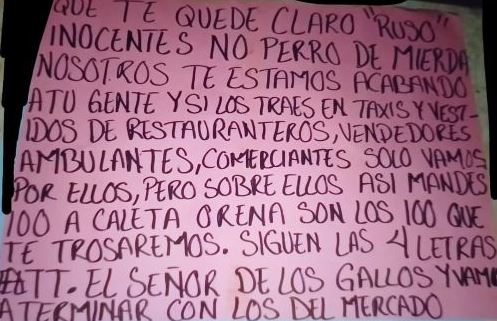 QUE TE QUEDE CLARO "RUSO"
INOCENTES NO PERRO DE MIERDA
NOSOTROS TE ESTAMOS ACABANDO
ATU GENTE Y SI LOS TRAES EN TAXIS Y VEST-
IDOS DE RESTAURANTEROS, VENDEDORES
AMBULANTES, COMERCIANTES SOLO VAMOS
POR ELLOS, PERO SOBRE ELLOS ASI MANDES
100 A CALETA O RENA SON LOS 100 QUE
TE TROSAREMOS. SIGUEN LAS 4 LETRAS
ATT. EL SEÑOR DE LOS GALLOS Y VAMO
A TERMINAR CON LOS DEL MERCADO